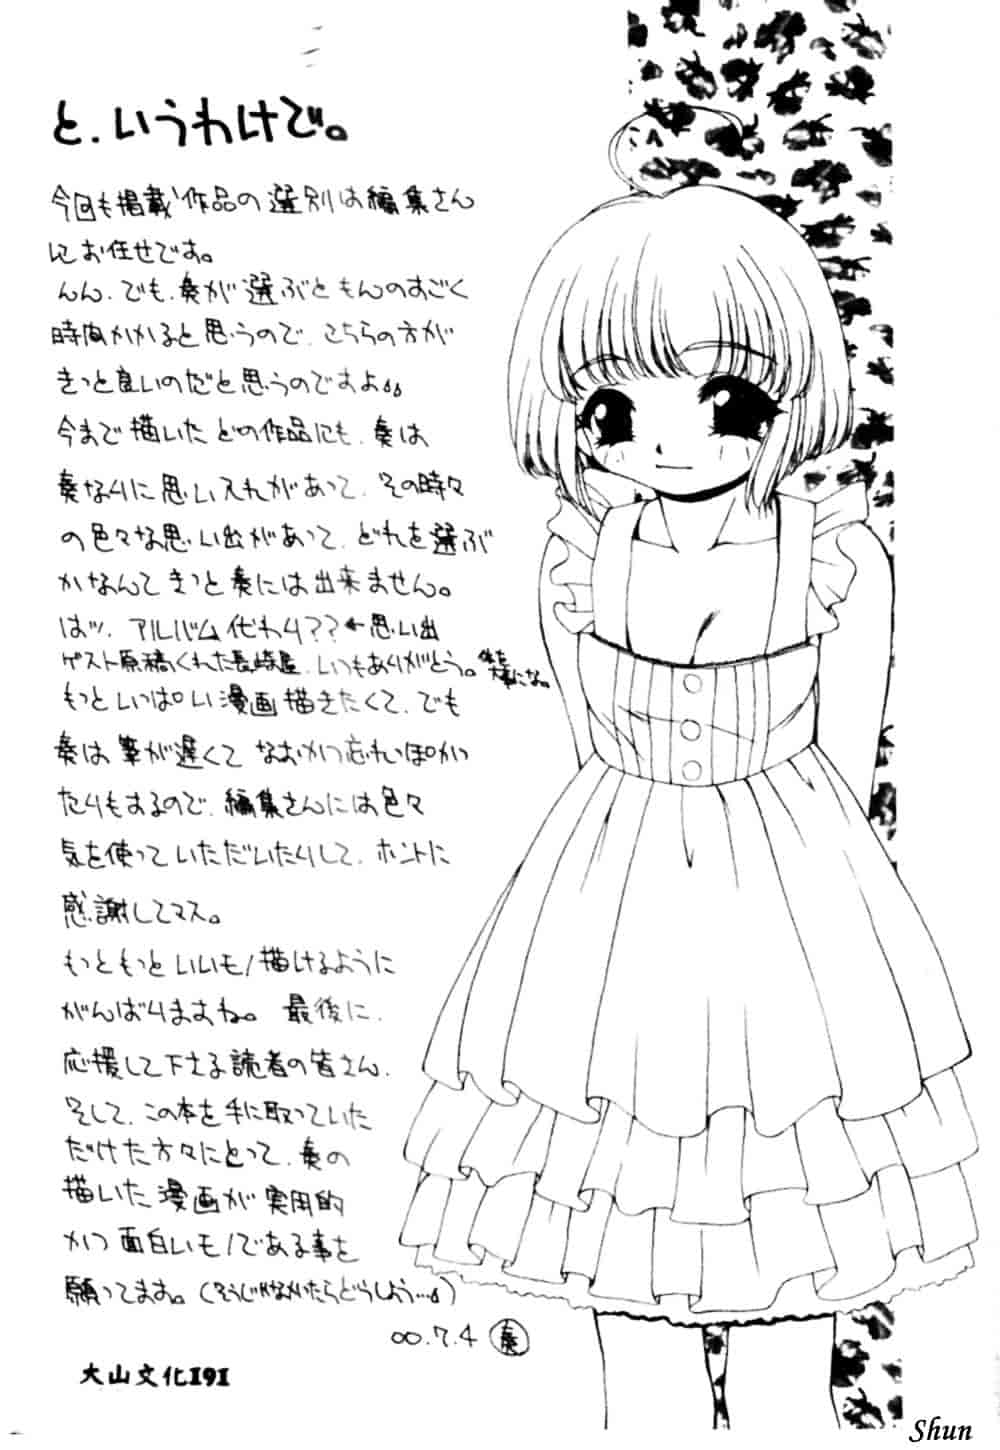 と、いうわけで。
今回も掲載作品の選別は編集さん
にお任せです。
んん、でも、奏が選ぶともんのすごく
時間かかると思うので、こちらの方が
きっと良いのだと思うのですよ
今まで描いたどの作品にも、奏は
奏なりに思い入れがあって、その時々
の色々な思い出があって、どれを選ぶ
かなんてきっと奏には出来ません。
はッ、アルバム代わり??←思い出
ゲスト原稿くれた長崎屋、いつもありがとう。体大事にな。
もっといっぱい漫画描きたくて、でも
奏は筆が遅くてなおかつ忘れっぽかっ
たりもするので、編集さんには色々
気を使っていただいたりして、ホントに
感謝してマス。
もっともっといいモノ描けるように
がんばりますね。最後に、
応援して下さる読者の皆さん、
そして、この本を手に取っていた
だけた方々にとって、奏の
描いた漫画が実用的
かつ面白いモノである事を
願ってます。(そうじゃなかったらどうしよう…)
00.7.4 奏
大山文化191
Shun